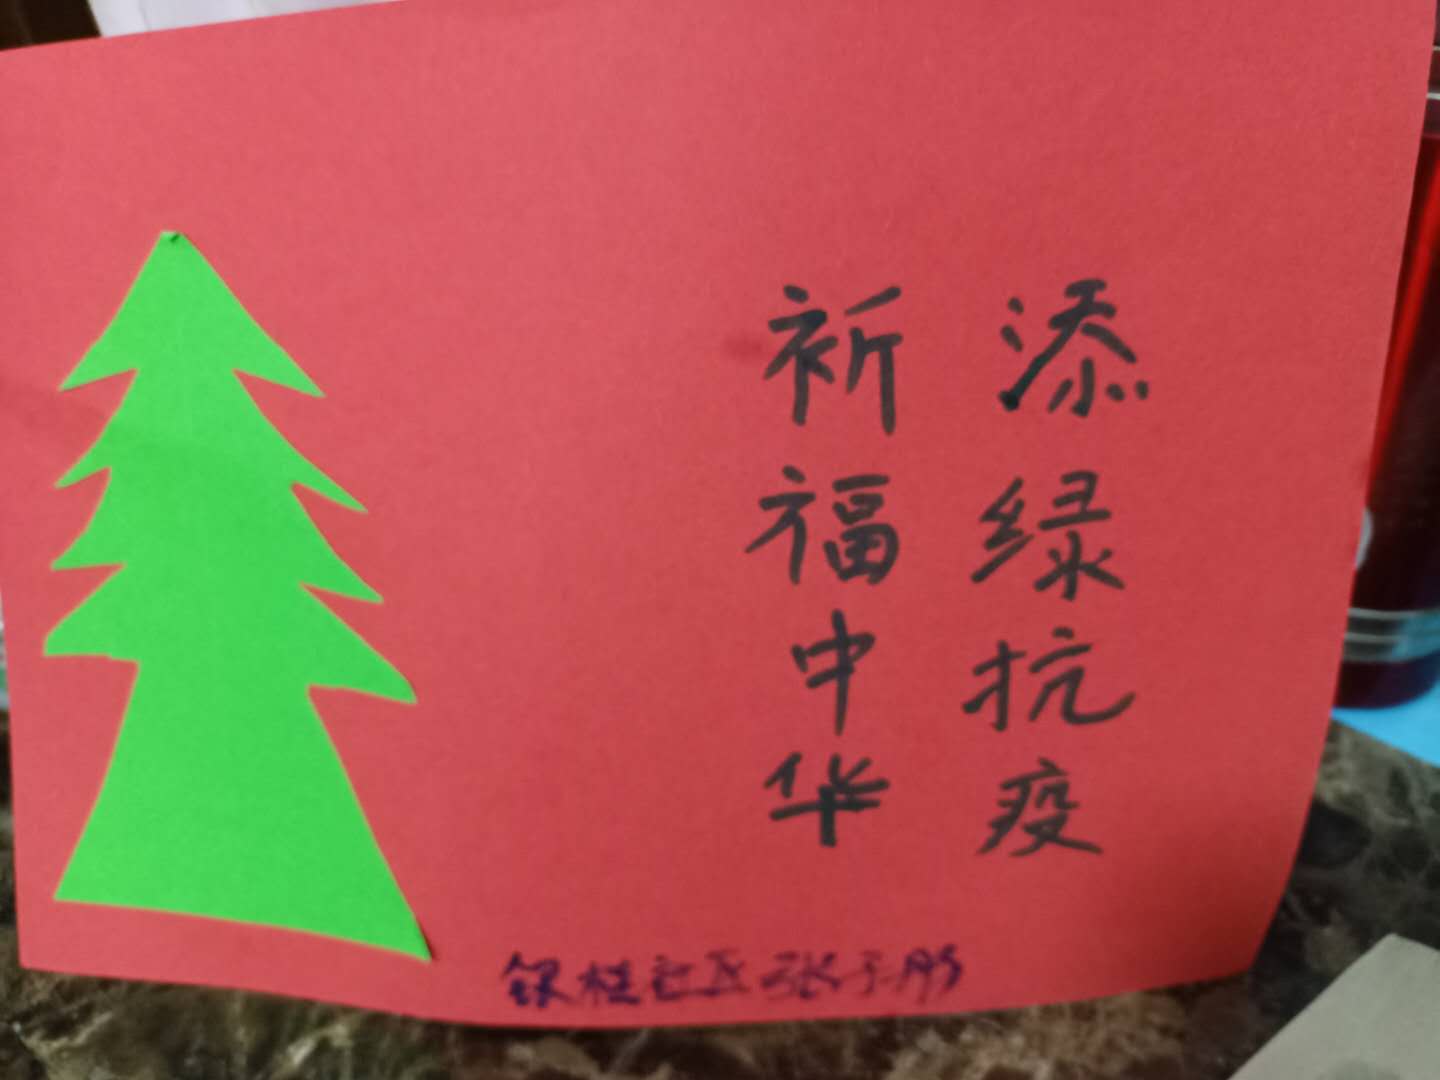 添绿抗疫
祈福中华
银桂社区张于彤